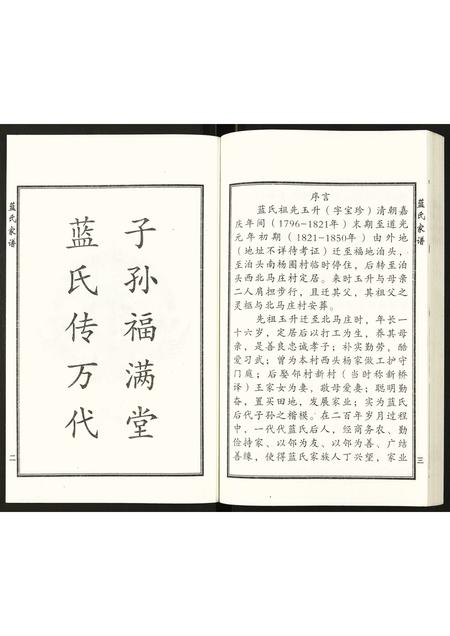 蓝氏家谱
子孙福满堂
蓝氏传万代
二
蓝氏家谱
序言
蓝氏祖先玉升（字宝珍）清朝嘉
庆年间（1796~1821年）末期至道光
元年初期（1821~1850年）由外地
（地址不详待考证）迁至福地泊头，
至泊头南杨圈村临时停住，后转至泊
头西北马庄村定居。来时玉升与母亲
二人肩担步行，且迁其父，其祖父之
灵柩与北马庄村安葬。
先祖玉升迁至北马庄时，年长一
十六岁，定居后以打工为生，养其母
亲，是善良忠诚孝子；朴实勤劳，酷
爱习武；曾为本村西头杨家做工护守
门庭；后娶邻村新村（当时称新桥
译）王家女为妻，敬母爱妻；聪明勤
奋，置买田地，发展家业；实为蓝氏
后代子孙之楷模。在二百年岁月过程
中，一代代蓝氏后人，经商务农、勤
俭持家、以邻为友、以邻为善、广结
善缘，使得蓝氏家族人丁兴望，家业
三